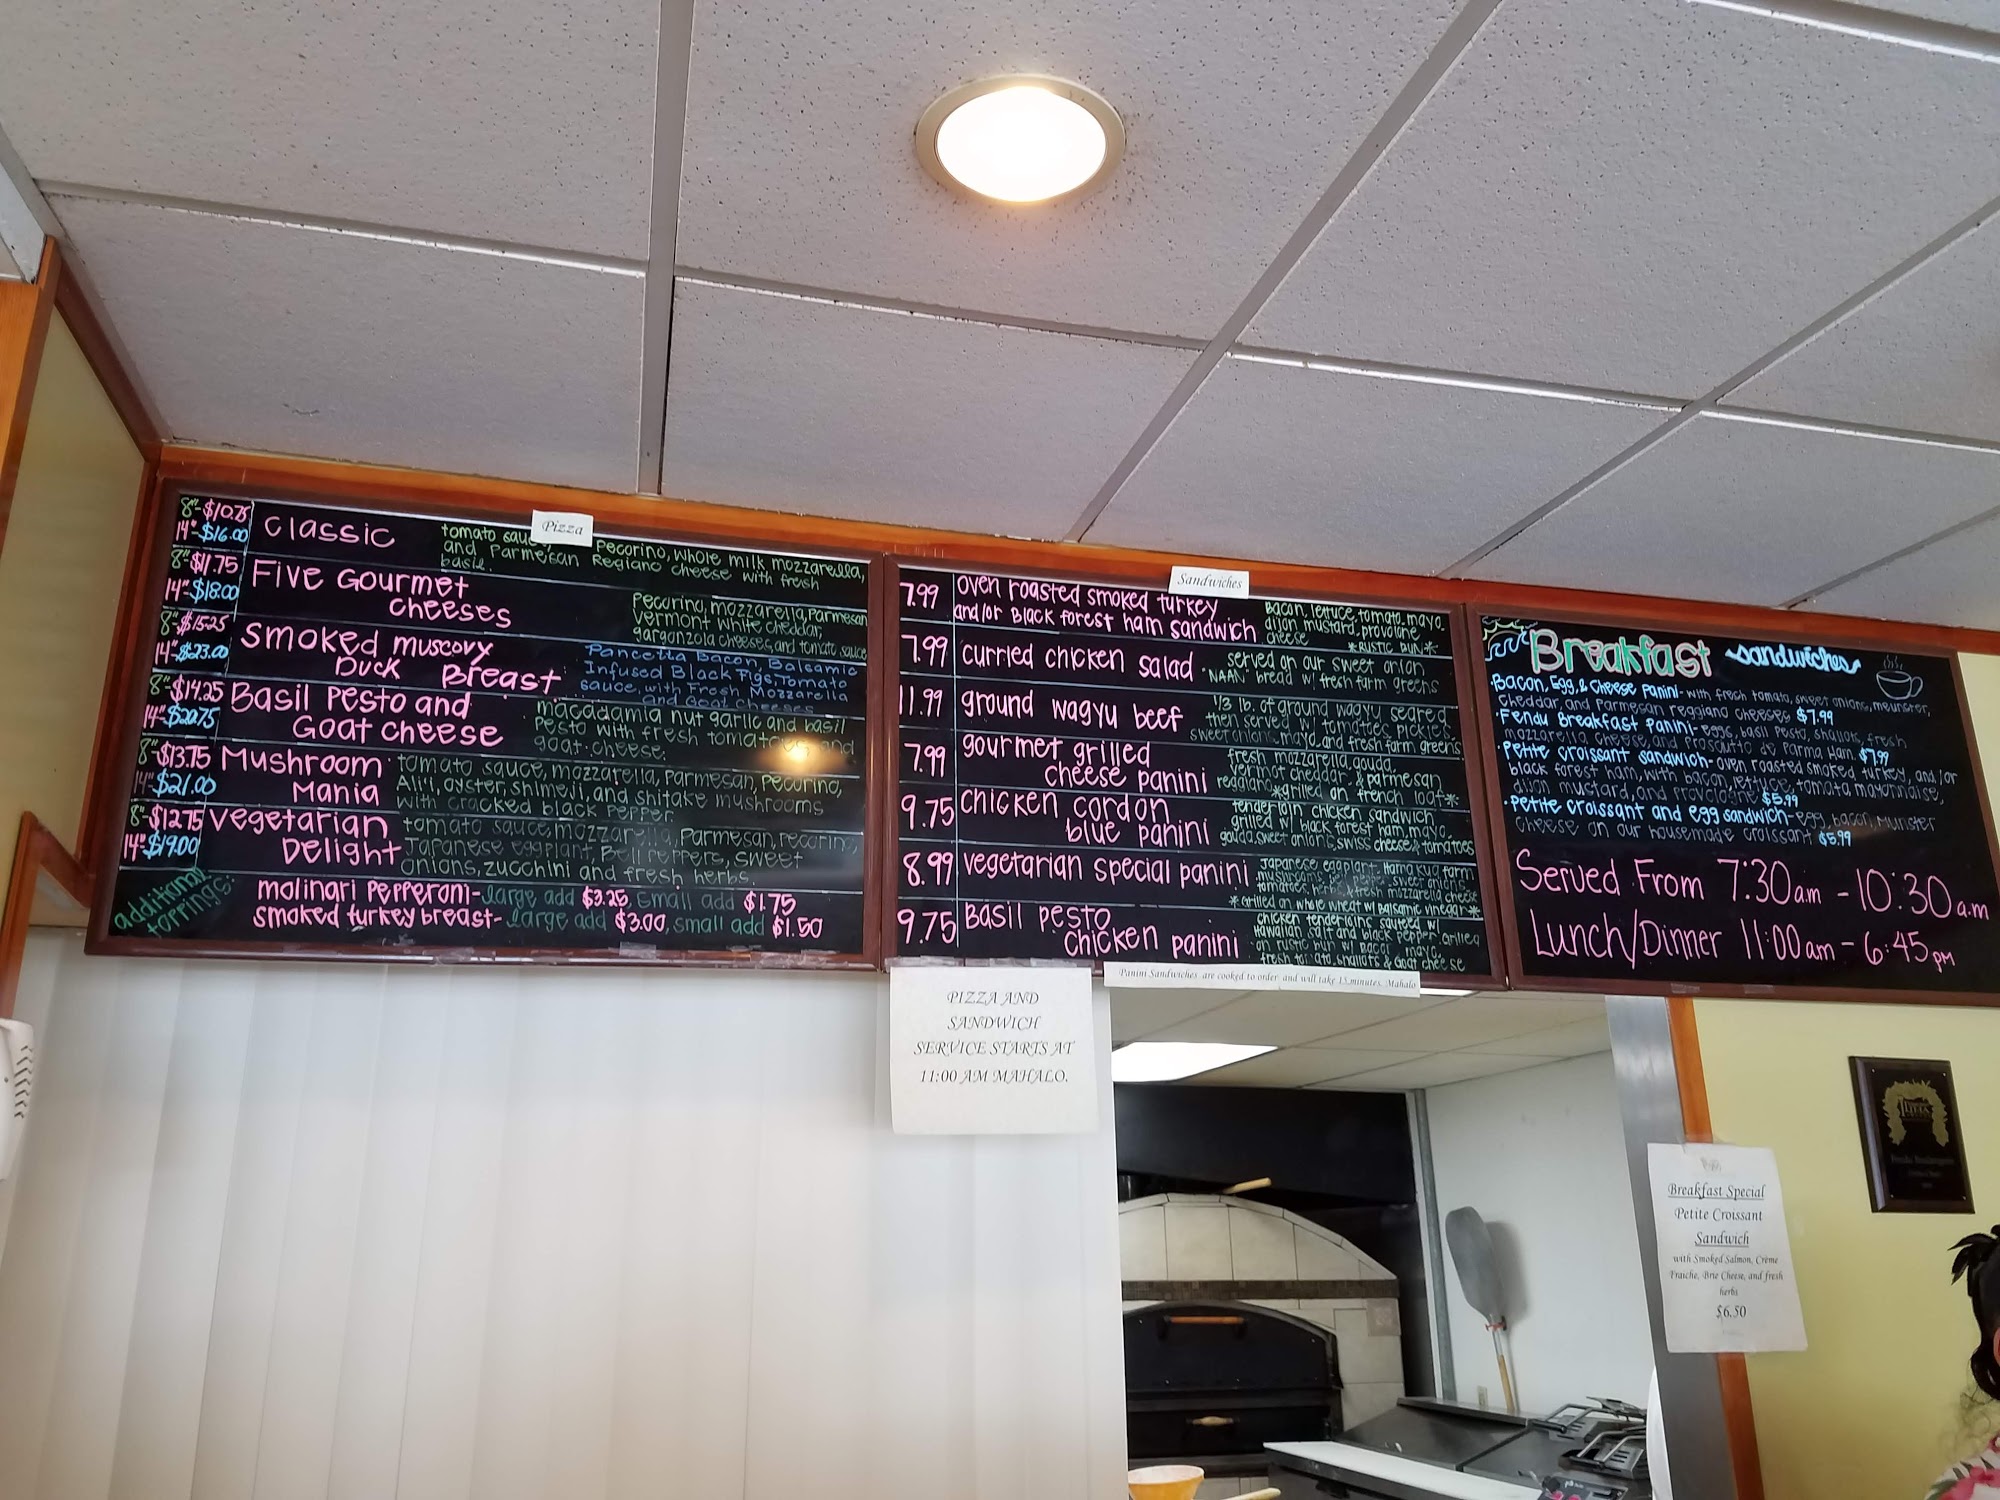 Pizza
8"-$10.75
14"-$16.00
Classic
tomato sauce, Pecorino, whole milk mozzarella,
and Parmesan Regiano cheese with fresh
basil.
8"-$11.75
14"-$18.00
Five Gourmet
Cheeses
Pecorino, mozzarella, Parmesan
Vermont white cheddar,
gargonzola cheeses, and tomato sauce
8"-$15.25
14"-$23.00
Smoked Muscovy
Duck Breast
Pancetta Bacon, Balsamic
Infused Black Figs, Tomato
sauce, with Fresh Mozzarella
and Goat Cheeses
8"-$14.25
14"-$20.75
Basil Pesto and
Goat Cheese
macadamia nut garlic and basil
Pesto with fresh tomatoes and
goat cheese.
8"-$13.75
14"-$21.00
Mushroom
Mania
tomato sauce, mozzarella, Parmesan, Pecorino,
Ali'i, oyster, shimeji, and shitake mushrooms
with cracked black pepper
8"-$12.75
14"-$19.00
Vegetarian
Delight
tomato sauce, mozzarella, Parmesan, Pecorino,
Japanese eggplant, Bell Peppers, sweet
onions, zucchini and fresh herbs.
additional
toppings:
molinari Pepperoni-large add $3.25, small add $1.75
smoked turkey breast-large add $3.00, small add $1.50
Sandwiches
7.99
oven roasted smoked turkey
and/or Black forest ham sandwich
Bacon, lettuce, tomato, mayo,
dijon mustard, provolone
cheese
*RUSTIC BUN*
7.99
curried chicken salad
served on our sweet onion
"NAAN" bread w/ fresh farm greens
11.99
ground wagyu beef
1/3 lb. of ground wagyu seared
then served w/ tomatoes, pickles,
sweet onions, mayo, and fresh farm greens
7.99
gourmet grilled
cheese panini
fresh mozzarella, gouda,
vermot cheddar, & parmesan
reggiano *grilled on french loaf*
9.75
chicken cordon
blue panini
tenderloin chicken sandwich
grilled w/ black forest ham, mayo,
gouda, sweet onions, swiss cheese & tomatoes
8.99
vegetarian special panini
Japanese eggplant, Hamakua farm
mushrooms, sweet onions,
tomatoes, herbs, & fresh mozzarella cheese
*Grilled on whole wheat w/ Balsamic vinegar*
9.75
Basil pesto
chicken panini
chicken tenderloins sauteed w/
Hawaiian salt and black pepper grilled
on rustic bun w/ bacon, mayo,
fresh tomato, shallots & Goat cheese
Breakfast sandwiches
•Bacon, Egg, & Cheese Panini-with fresh tomato, sweet onions, meunster,
cheddar, and Parmesan reggiano cheeses $7.99
•Fendu Breakfast Panini-eggs, basil pesto, shallots, fresh
mozzarella cheese, and Prosciutto de Parma Ham. $7.99
•Petite croissant sandwich-oven roasted smoked turkey, and/or
black forest ham, with bacon, lettuce, tomato, mayonnaise,
dijon mustard, and provolone $5.99
•Petite croissant and egg sandwich-egg, bacon, Munster
cheese on our housemade croissant $5.99
Served From 7:30am - 10:30a.m
Lunch/Dinner 11:00am - 6:45pm
Panini Sandwiches are cooked to order and will take 15 minutes. Mahalo
PIZZA AND
SANDWICH
SERVICE STARTS AT
11:00 AM MAHALO.
Breakfast Special
Petite Croissant
Sandwich
with Smoked Salmon, Crème
Fraiche, Brie Cheese, and fresh
herbs
$6.50